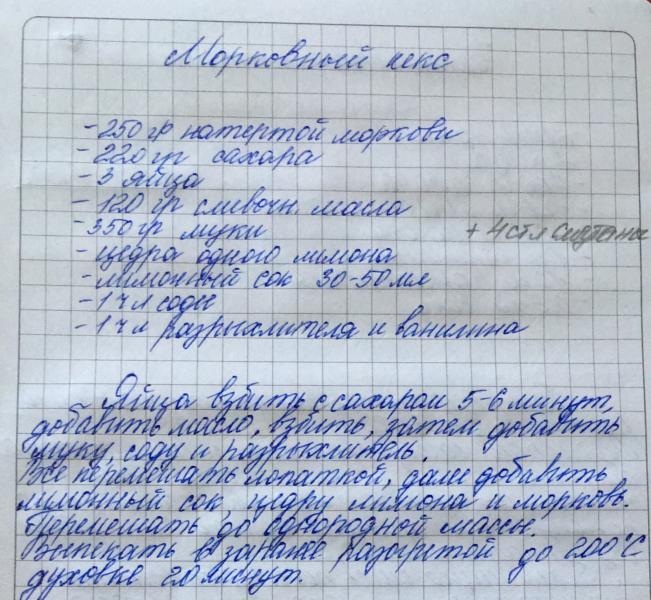 Морковный кекс
- 250 гр натертой моркови
- 220 гр сахара
- 3 яйца
- 120 гр сливочн. масла
- 350 гр муки + 4 стл сметаны
- цедра одного лимона
- лимонный сок 30-50 мл
- 1 ч л соды
- 1 ч л разрыхлителя и ванилина
Яйца взбить с сахаром 5-6 минут,
добавить масло, взбить, затем добавить
муку, соду и разрыхлитель.
Все перемешать лопаткой, далее добавить
лимонный сок, цедру лимона и морковь.
Перемешать до однородной массы.
Выпекать в заранее разогретой до 200°С
духовке 20 минут.